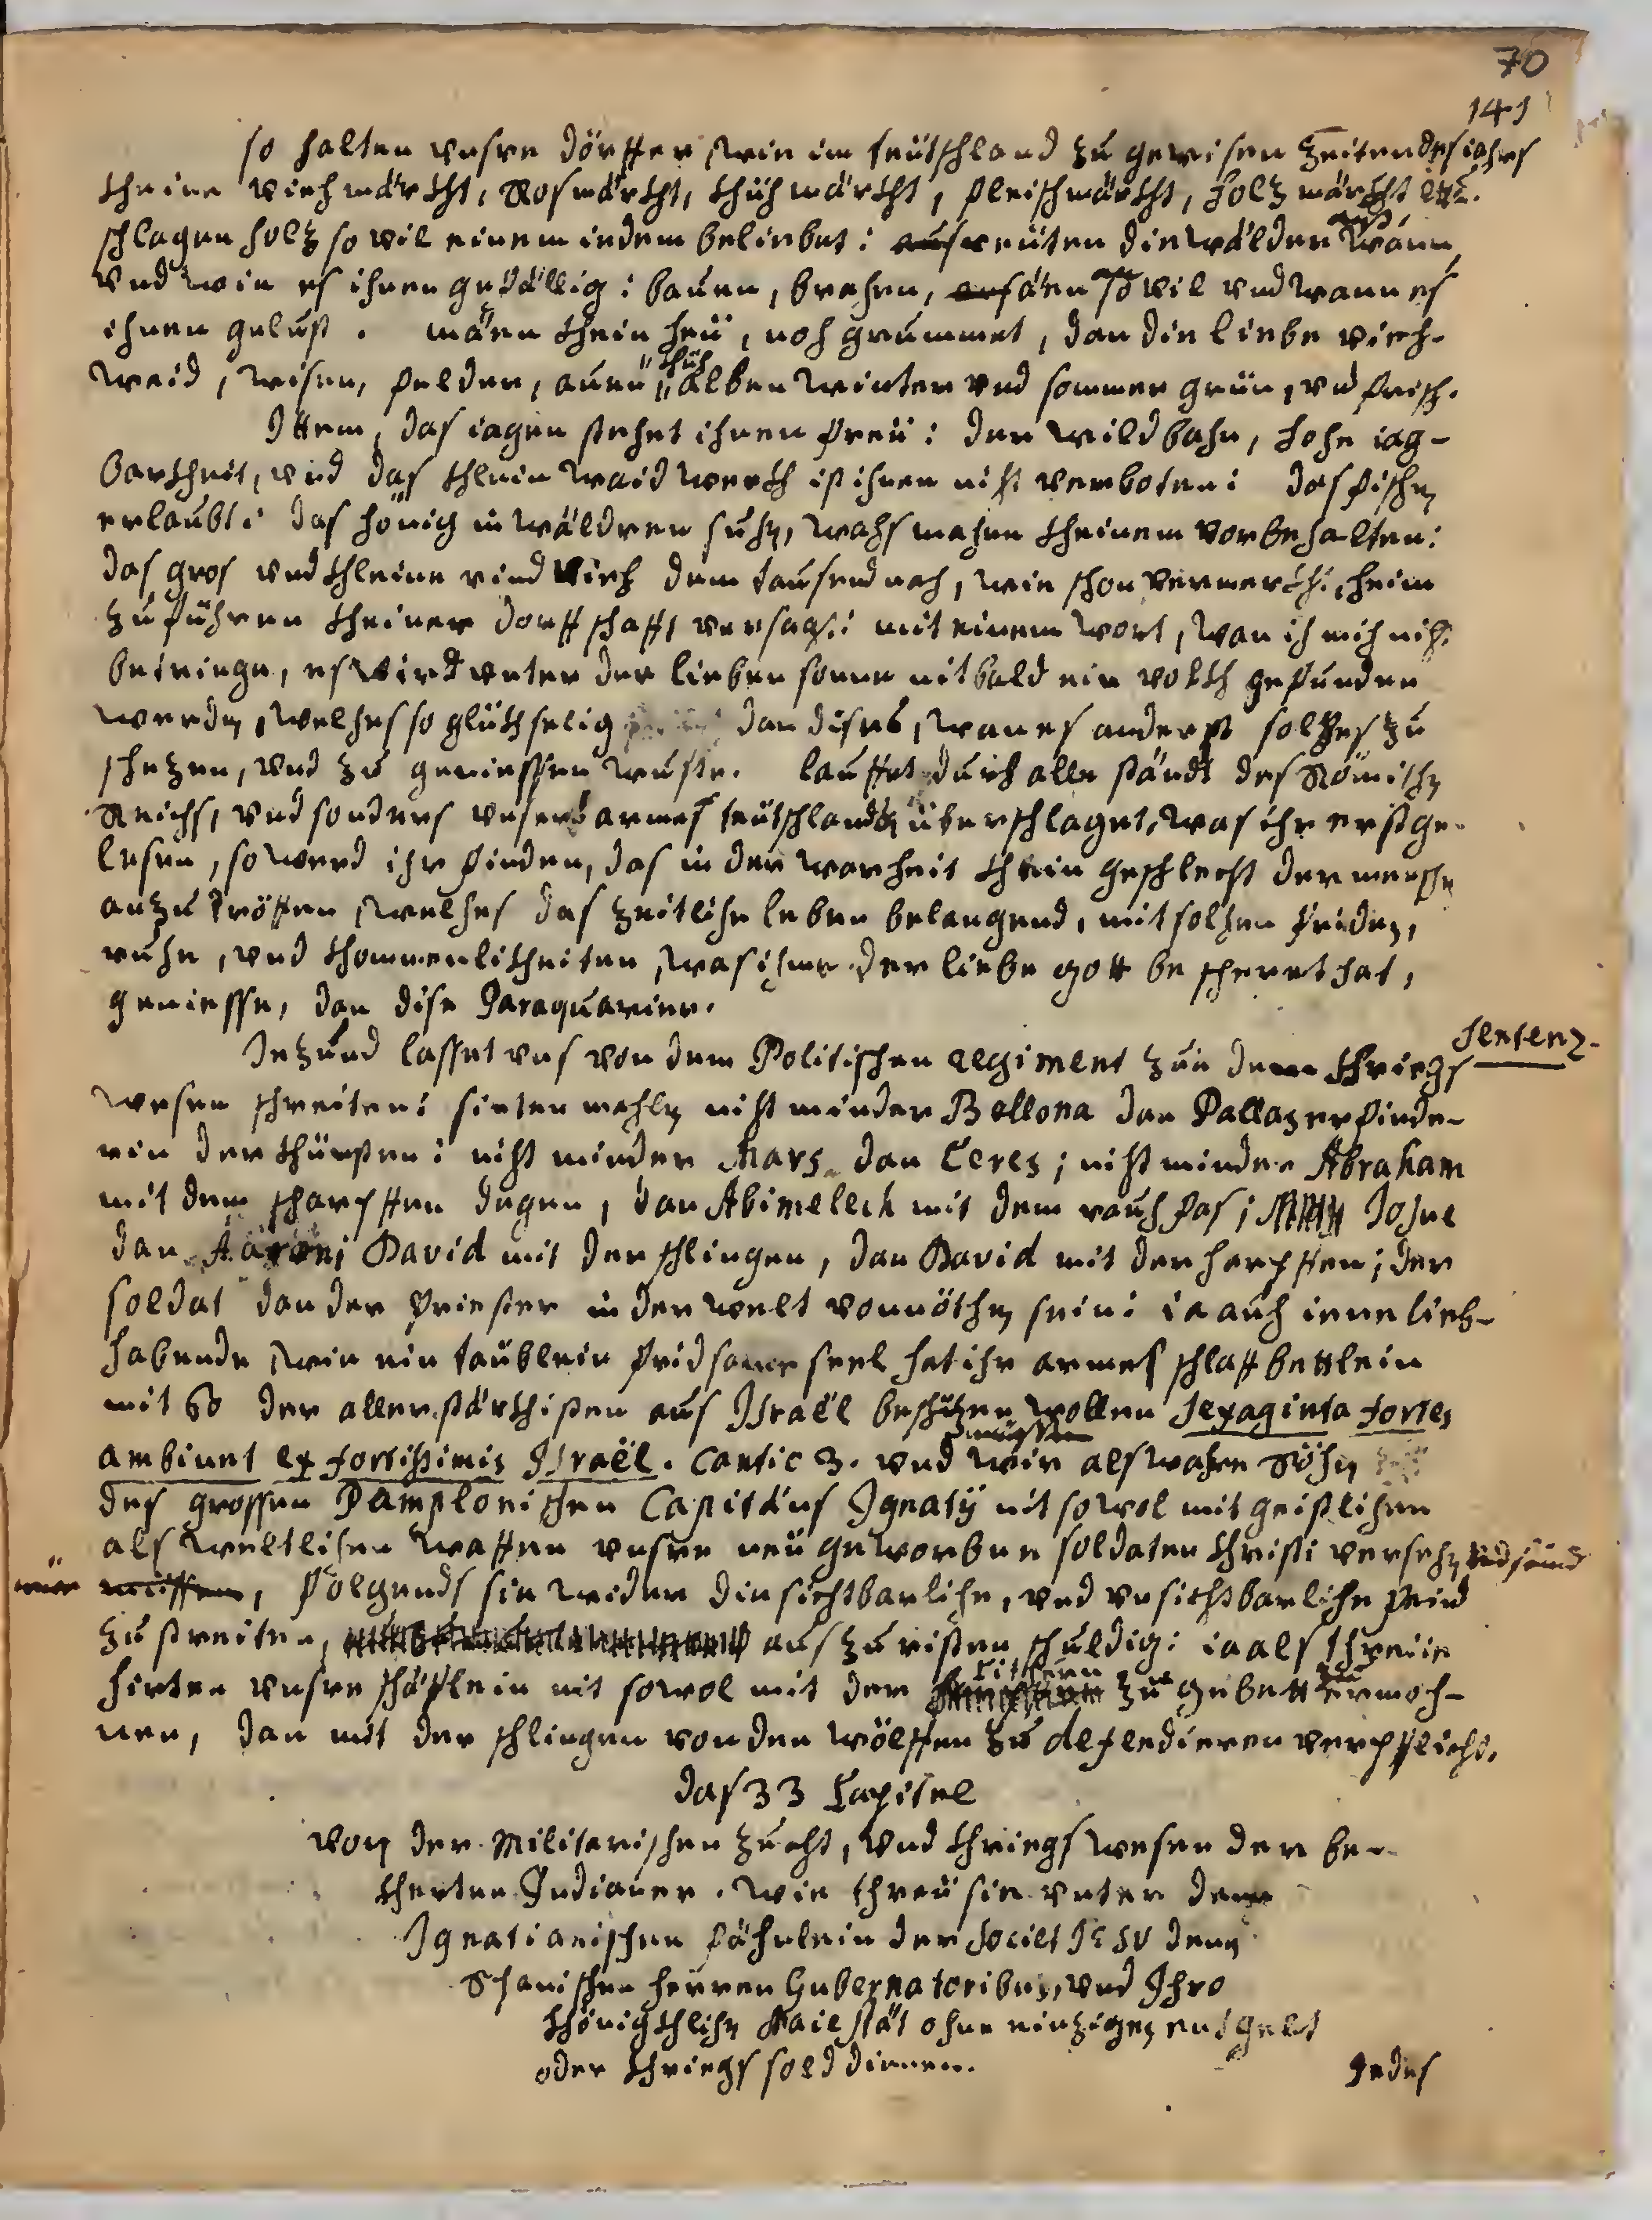 70
141
so halten unsre dörffer, wie im teütschland zu gewisen zeiten des iahrs
kheine viehmärckht, Rosmärckht, khühmärckht, fleischmärckht, holzmärckht etc.
schlagen holz so vil einem iedem beliebet: reüten die wälder auß, wann,
und wie es ihnen gefällig: bauen, brahen, säen an so vil und wann es
ihnen gelust. mäen khein heü, noh grummet, dan die liebe vieh-
weid, wisen, felder, auen, khüh alben winter und sommer grün, und frisch.
Ittem, das iagen stehet ihnen freü: der wildbahn, hohe iag-
barkheit, und das khlein waidwerckh ist ihnen niht verboten: das fischen
erlaubt: das hönig in wäldren suhen, wahs mahen kheinem vorbehalten:
das gros und khleine rind vieh dem tausend nah, wie schon vermerckht, heim
zu führen kheiner dorffschafft versagt: mit einem wort, wan ih mih niht
betriege, es wird unter der lieben sonne nit bald ein volckh gefunden
werden, welhes so glückhselig dan dises, wan es anderst solhes zu
schezen, und zu geniessen wuste. lauffet durch alle ständt des Römischen
Reichs, und sonders unsers armes teütschlands, überschlaget, was ihr erst ge-
lesen, so werd ihr finden, das in der warheit khein geschlecht der menschen
anzu tröffen, welhes das zeitlihe leben belangend, mit solhen friden,
ruhe, und khommenlikheiten, was ihme der liebe gott bescheret hat,
geniesse, dan dise Paraquarier.
Sentenz.
Iezund lasset uns von dem Politischen regiment zu dem khriegs
wesen schreiten: sintenmahlen niht minder Bellona dan Pallas erfinde-
rin der khünsten: niht minder Mars dan Ceres; niht minder Abraham
mit dem scharpffen degen, dan Abimelech mit dem rauhfas; Josue
dan Aaron; David mit der schlingen, dan David mit der harpffen; der
soldat dan der priester in der welt vonnöthen sein: ia auch iene lieb-
habende, wie ein täublein fridsame seel hat ihr armes schlaffbettlein
mit 60 der allerstärckhisten aus Israël beschüzen wollen Sexaginta fortes
ambiunt ex fortissimis Israël. Cantic 3. und wir müssen als wahre Söhn
des grossen Pamplonischen Capitäns Ignatÿ nit sowol mit geistlihen
als weltlihen waffen unsre neü geworbne soldaten Christi versehen und seind
wür, folgends sie wider die sichtbarlihe, und unsichtbarlihe feind
zu streiten, aus zu risten schuldig: ia als threüe
hirten unsre schäflein nit sowol mit der cithern zu gebett zu ermoh-
nen, dan mit der schlingen von den wölffen zu defendieren verpflicht.
das 33 Capitel
von der Militarischen zucht, und khriegswesen der be-
kherten Indianer. wie threü sie unter dem
Ignatianischen fähnlein der Societ JESU denen
Spanischen herren Gubernatoribus, und Ihro
khönigkhlihen Maiestät ohne einziges entgelt
oder khriegssold dienen.
Indes